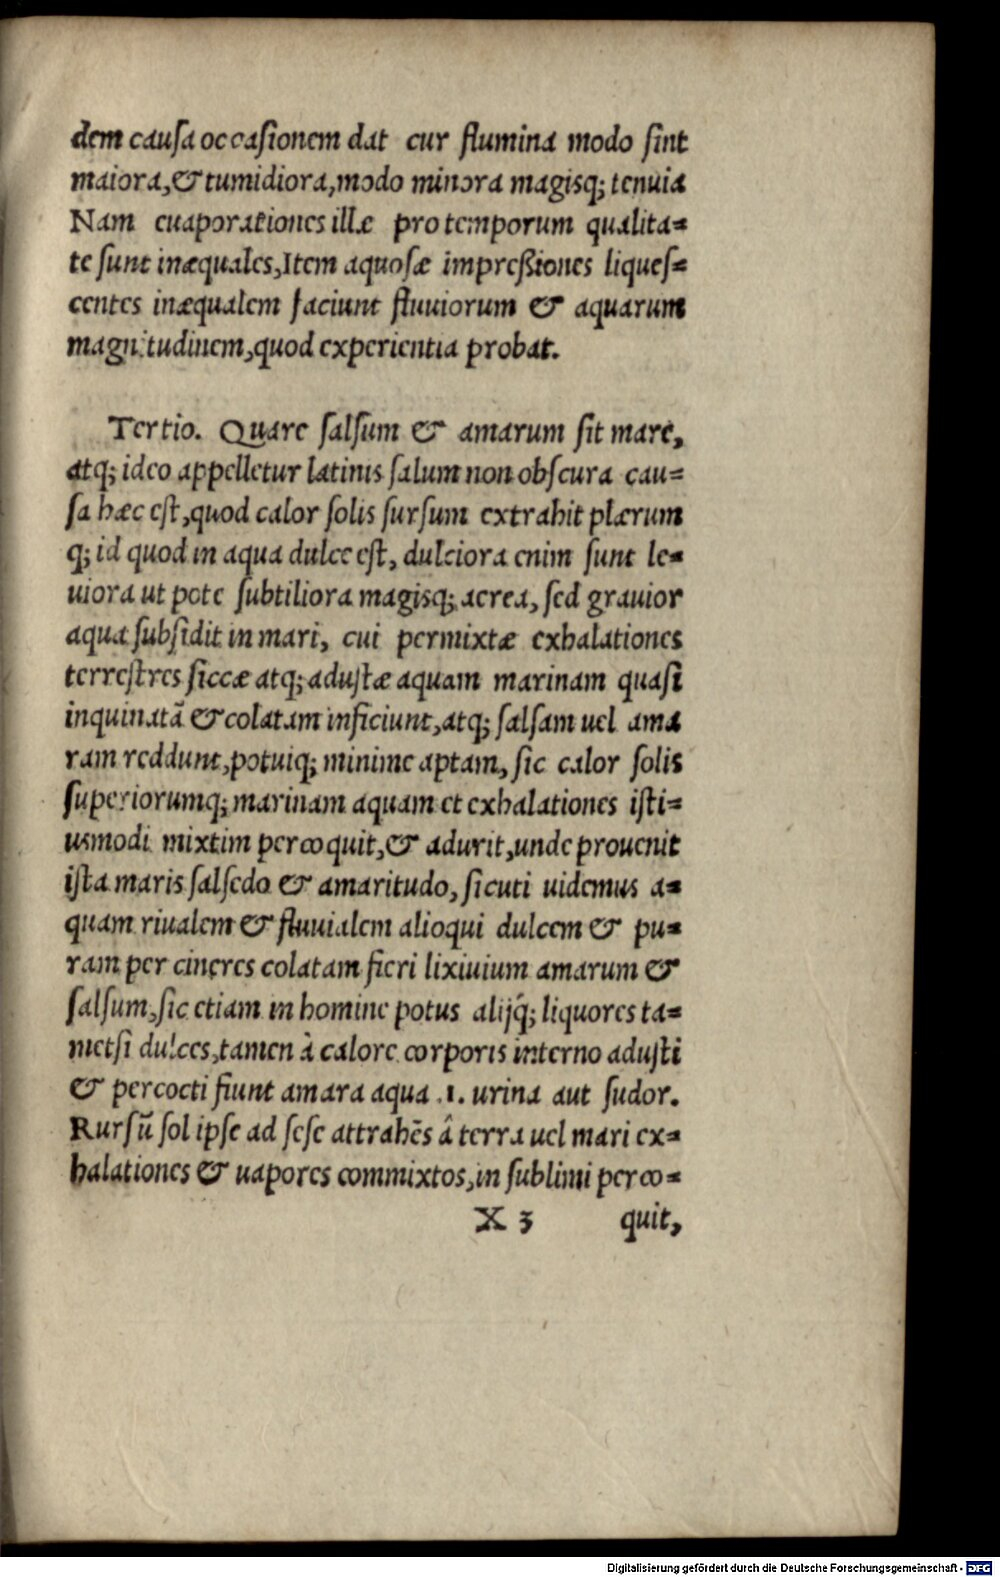 dem causa occasionem dat cur flumina modo sint
maiora,& tumidiora,modo minora magisq; tenuia
Nam euaporationes illæ pro temporum qualita=
te sunt inæquales,Item aquosæ impreßiones liques=
centes inæqualem faciunt fluuiorum & aquarum
magnitudinem,quod experientia probat.
Tertio. Quare salsum & amarum sit mare,
atq; ideo appelletur latinis salum non obscura cau=
sa hæc est,quod calor solis sursum extrahit plærum
q; id quod in aqua dulce est, dulciora enim sunt le=
uiora ut pote subtiliora magisq; aerea, sed grauior
aqua subsidit in mari, cui permixtæ exhalationes
terrestres siccæ atq; adustæ aquam marinam quasi
inquinatã & colatam inficiunt,atq; salsam uel ama
ram reddunt,potuiq; minime aptam, sic calor solis
superiorumq; marinam aquam et exhalationes isti=
usmodi mixtim percoquit,& adurit,unde prouenit
ista maris salsedo & amaritudo, sicuti uidemus a=
quam riualem & fluuialem alioqui dulcem & pu=
ram per cineres colatam fieri lixiuium amarum &
salsum,sic etiam in homine potus alijq́; liquores ta=
metsi dulces,tamen à calore corporis interno adusti
& percocti fiunt amara aqua .1. urina aut sudor.
Rursũ sol ipse ad sese attrahẽs â terra uel mari ex=
halationes & uapores commixtos,in sublimi perco=
X 3 quit,
Digitalisierung gefördert durch die Deutsche Forschungsgemeinschaft - DFG